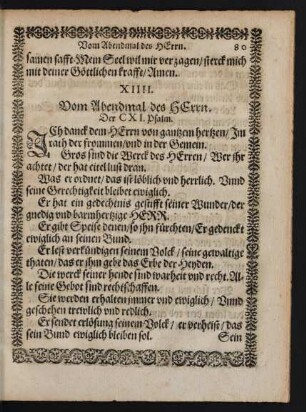 Vom Abendmal des HErrn. 80
samen safft Mein Seel wil mir verzagen/ sterck mich
mit deiner Göttlichen krafft/ Amen.
XIIII.
Vom Abendmal des HErrn.
Der CXI. Psalm.
ICh danck dem HErrn von gantzem hertzen/ Im
rath der frommen/ vnd in der Gemein.
Gros sind die Werck des HErren/ Wer ihr
achtet/ der hat eitel lust dran.
Was er ordnet/ das ist löblich vnd herrlich. Vnnd
seine Gerechtigkeit bleibet ewiglich.
Er hat ein gedechtnis gestifft seiner Wunder/ der
gnedig vnd barmhertzige HERR.
Er gibt Speise denen/ so ihn fürchten/ Er gedenckt
ewiglich an seinen Bund.
Er lest verkündigen seinem Volck/ seine gewaltige
thaten/ das er ihn gebe das Erbe der Heyden.
Die werck seiner hende sind warheit vnd recht. Al-
le seine Gebot sind rechtschaffen.
Sie werden erhalten immer vnd ewiglich/ Vnnd
geschehen trewlich vnd redlich.
Er sendet erlösung seinem Volck/ er verheist/ das
sein Bund ewiglich bleiben sol.
Sein